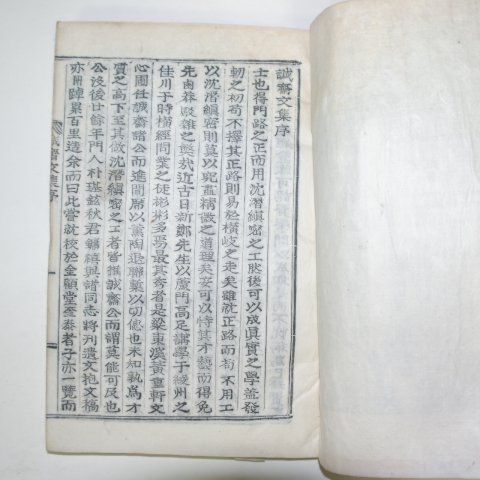 誠齋文集序
士也得門路之正而用沈潛縝密之工然後可以成眞實之學蓋發
軔之初苟不擇其正路則易於橫岐之走矣雖就正路而苟不用工
以沈潛縝密則莫以究盡精微之道理矣安可以恃其才藝而得免
先鹵莽殽雜之獘哉近古日新鄭先生以蘆門高足講學于綾州之
佳川于時橫經問業之徒彬彬多焉最其秀者是梁東溪黃重軒文
心圃任誠齋諸公而進聞席以薰陶退聯藁以切偲也未知孰爲才
質之高下至其做沈潛縝密之工者皆撰誠齋公而謂莫能可及也
公沒後廿餘年門人朴瑾鉉秋君 禧與諸同志將刊遺文抱文稿
亦冊踔累百里造余而曰此嘗就校於金顧堂 泰者子亦一覽而
誠齋文集序